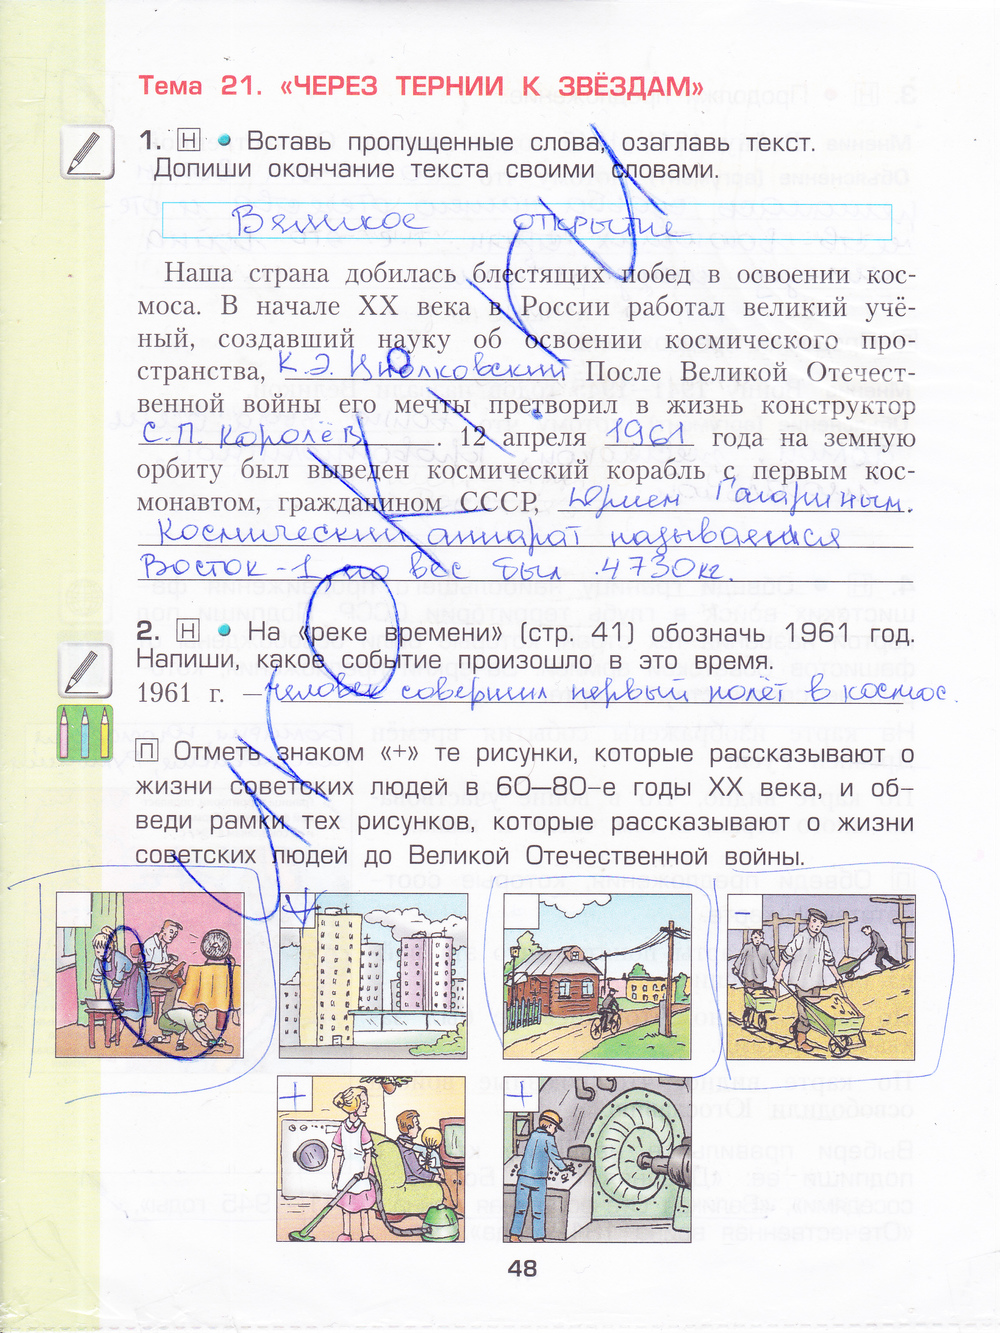 Тема 21. «ЧЕРЕЗ ТЕРНИИ К ЗВЁЗДАМ»
1. Н • Вставь пропущенные слова, озаглавь текст.
Допиши окончание текста своими словами.
Великое открытие
Наша страна добилась блестящих побед в освоении кос-
моса. В начале XX века в России работал великий учё-
ный, создавший науку об освоении космического про-
странства, К.Э. Циолковский После Великой Отечест-
венной войны его мечты претворил в жизнь конструктор
С.П. Королёв. 12 апреля 1961 года на земную
орбиту был выведен космический корабль с первым кос-
монавтом, гражданином СССР, Юрием Гагариным.
Космический аппарат назывался
Восток-1 его вес был 4730кг.
2. Н • На «реке времени» (стр. 41) обозначь 1961 год.
Напиши, какое событие произошло в это время.
1961 г. – человек совершил первый полёт в космос.
П Отметь знаком «+» те рисунки, которые рассказывают о
жизни советских людей в 60–80-е годы XX века, и об-
веди рамки тех рисунков, которые рассказывают о жизни
советских людей до Великой Отечественной войны.
+ -
+ +
48